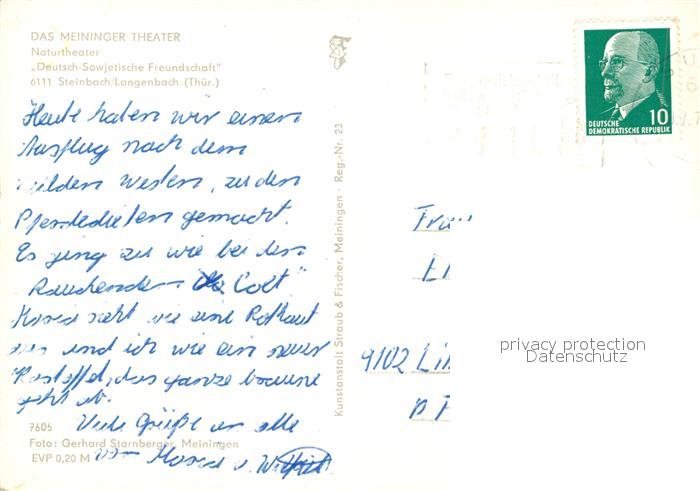 DAS MEININGER THEATER
Naturtheater
„Deutsch-Sowjetische Freundschaft"
6111 Steinbach/Langenbach (Thür.)
Heute haben wir einen
Ausflug nach dem
wilden Westen, zu den
Pferdedieben gemacht.
Es ging zu wie bei den
Rauchenden Colt"
sieht wie eine Rothaut
aus und ich wie ein neuer
das ganze braune
geht ab.
Viele Grüße an alle
von u.
7605
Foto: Gerhard Starnberger, Meiningen
EVP 0,20 M
Kunstanstalt Straub & Fischer, Meiningen · Reg.-Nr. 23
10
DEUTSCHE
DEMOKRATISCHE REPUBLIK
Frau
9102 Li
privacy protection
Datenschutz